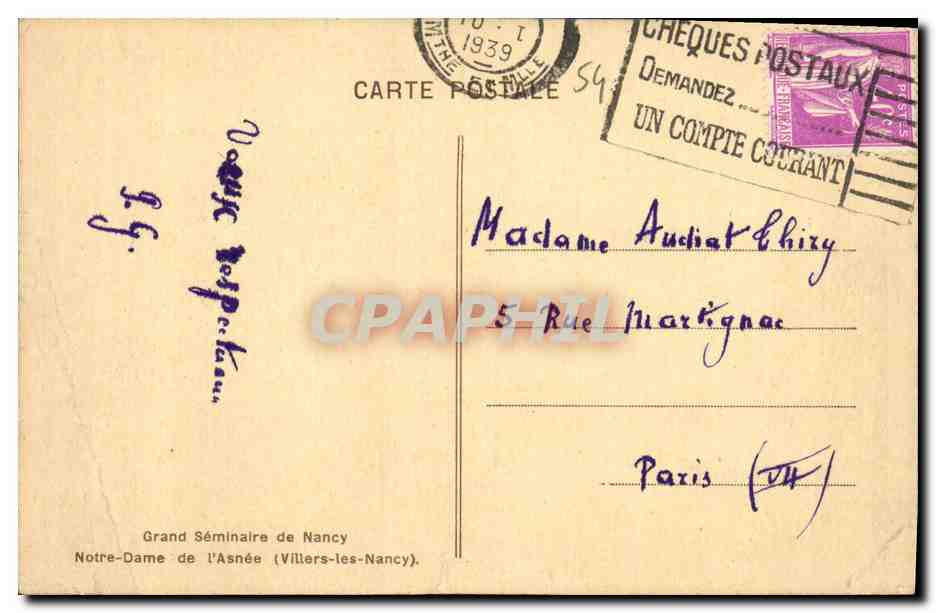 10 - I
1939
MTHE ET MLLE
CHÈQUES POSTAUX
DEMANDEZ
UN COMPTE COURANT
POSTES
FRANÇAISE
54
CARTE POSTALE
Voeux respectueux
J. G.
Madame Audiat Thiry
5 Rue Martignac
Paris (VII)
CPAPHIL
Grand Séminaire de Nancy
Notre-Dame de l'Asnée (Villers-les-Nancy).